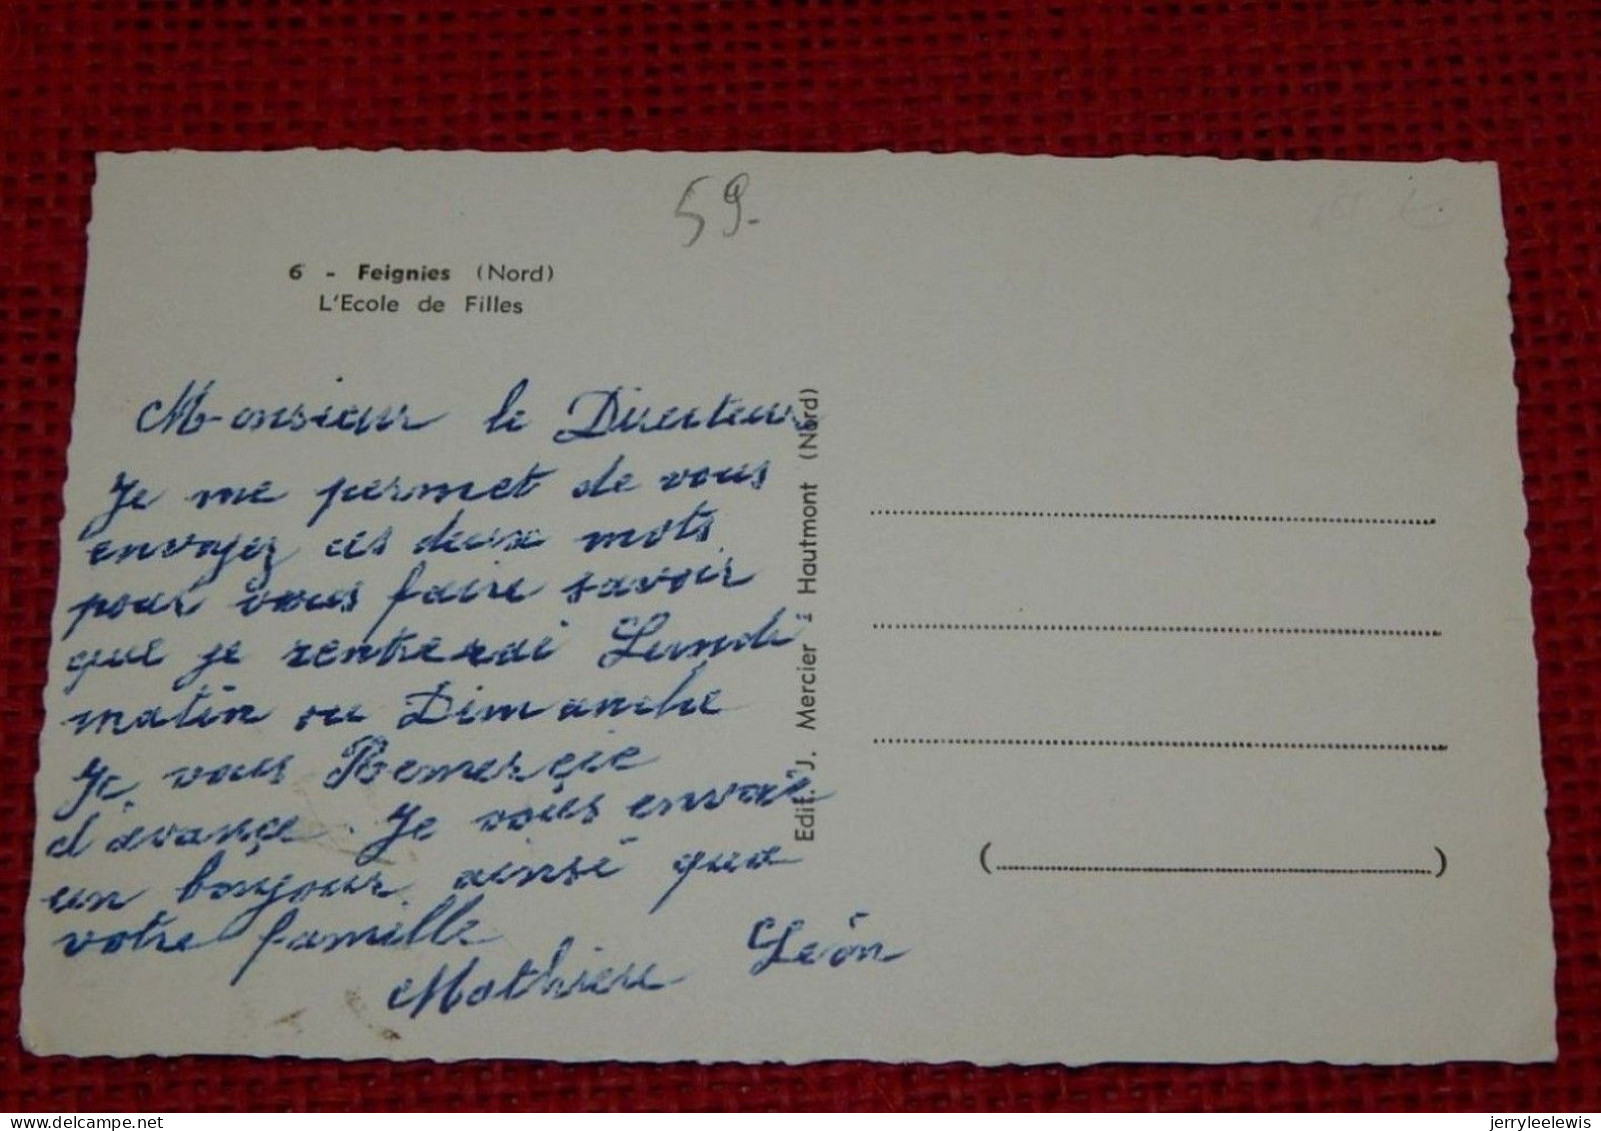 59-
6 - Feignies (Nord)
L'Ecole de Filles
Monsieur le Directeur
Je me permet de vous
envoyez ces deux mots
pour vous faire savoir
que je rentrerai Lundi
matin ou Dimanche
Je vous Remerçie
d'avançe. Je vous envoie
un bonjour ainsi que
votre famille
Mathieu Léon
Edit. J. Mercier à Hautmont (Nord)
(                    )
delcampe.net
jerryleelewis